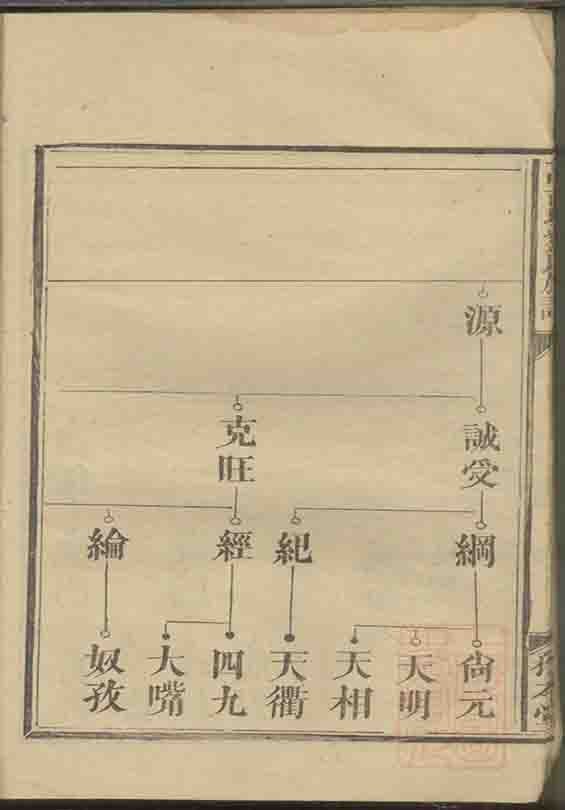 源
誠受
克旺
綱
紀
經
綸
尙元
天明
天相
天衢
四九
大嘴
奴孜